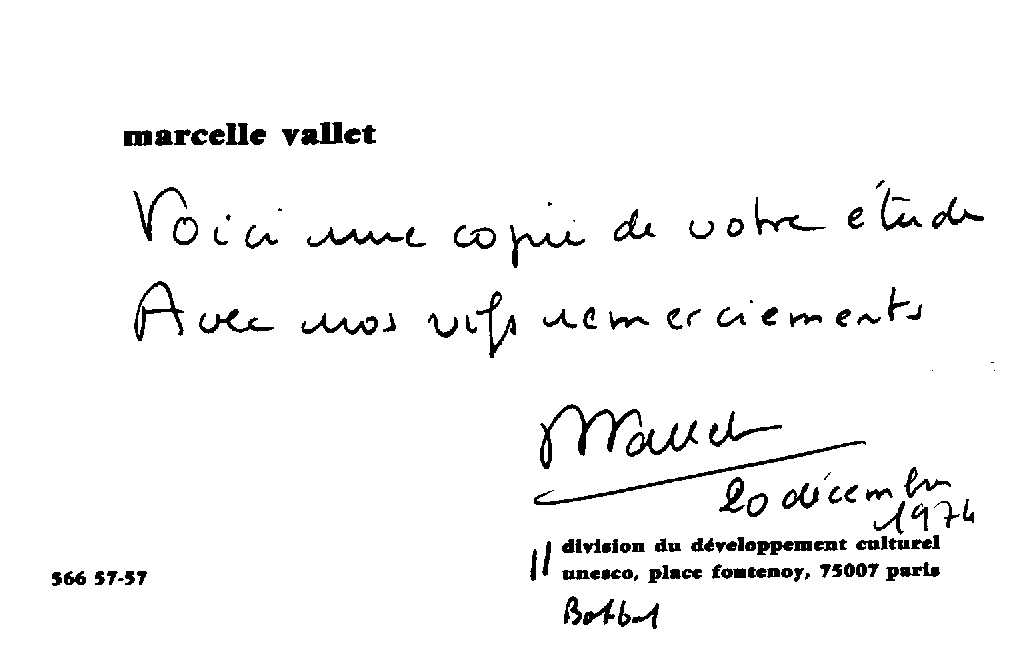 marcelle vallet
Voici une copie de votre étude
Avec nos vifs remerciements
MVallet
20 décembre
1974
division du développement culturel
unesco, place fontenoy, 75007 paris
566 57-57